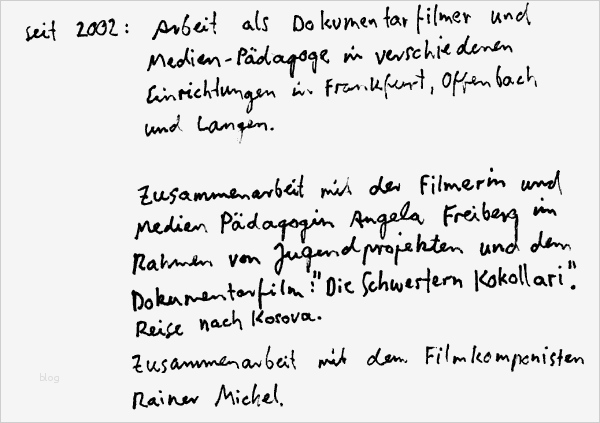 seit 2002: Arbeit als Dokumentarfilmer und
Medien-Pädagoge in verschiedenen
Einrichtungen in Frankfurt, Offenbach
und Langen.
Zusammenarbeit mit der Filmerin und
Medien Pädagogin Angela Freiberg im
Rahmen von Jugendprojekten und dem
Dokumentarfilm: "Die Schwestern Kokollari".
Reise nach Kosova.
Zusammenarbeit mit dem Filmkomponisten
blog
Rainer Michel.